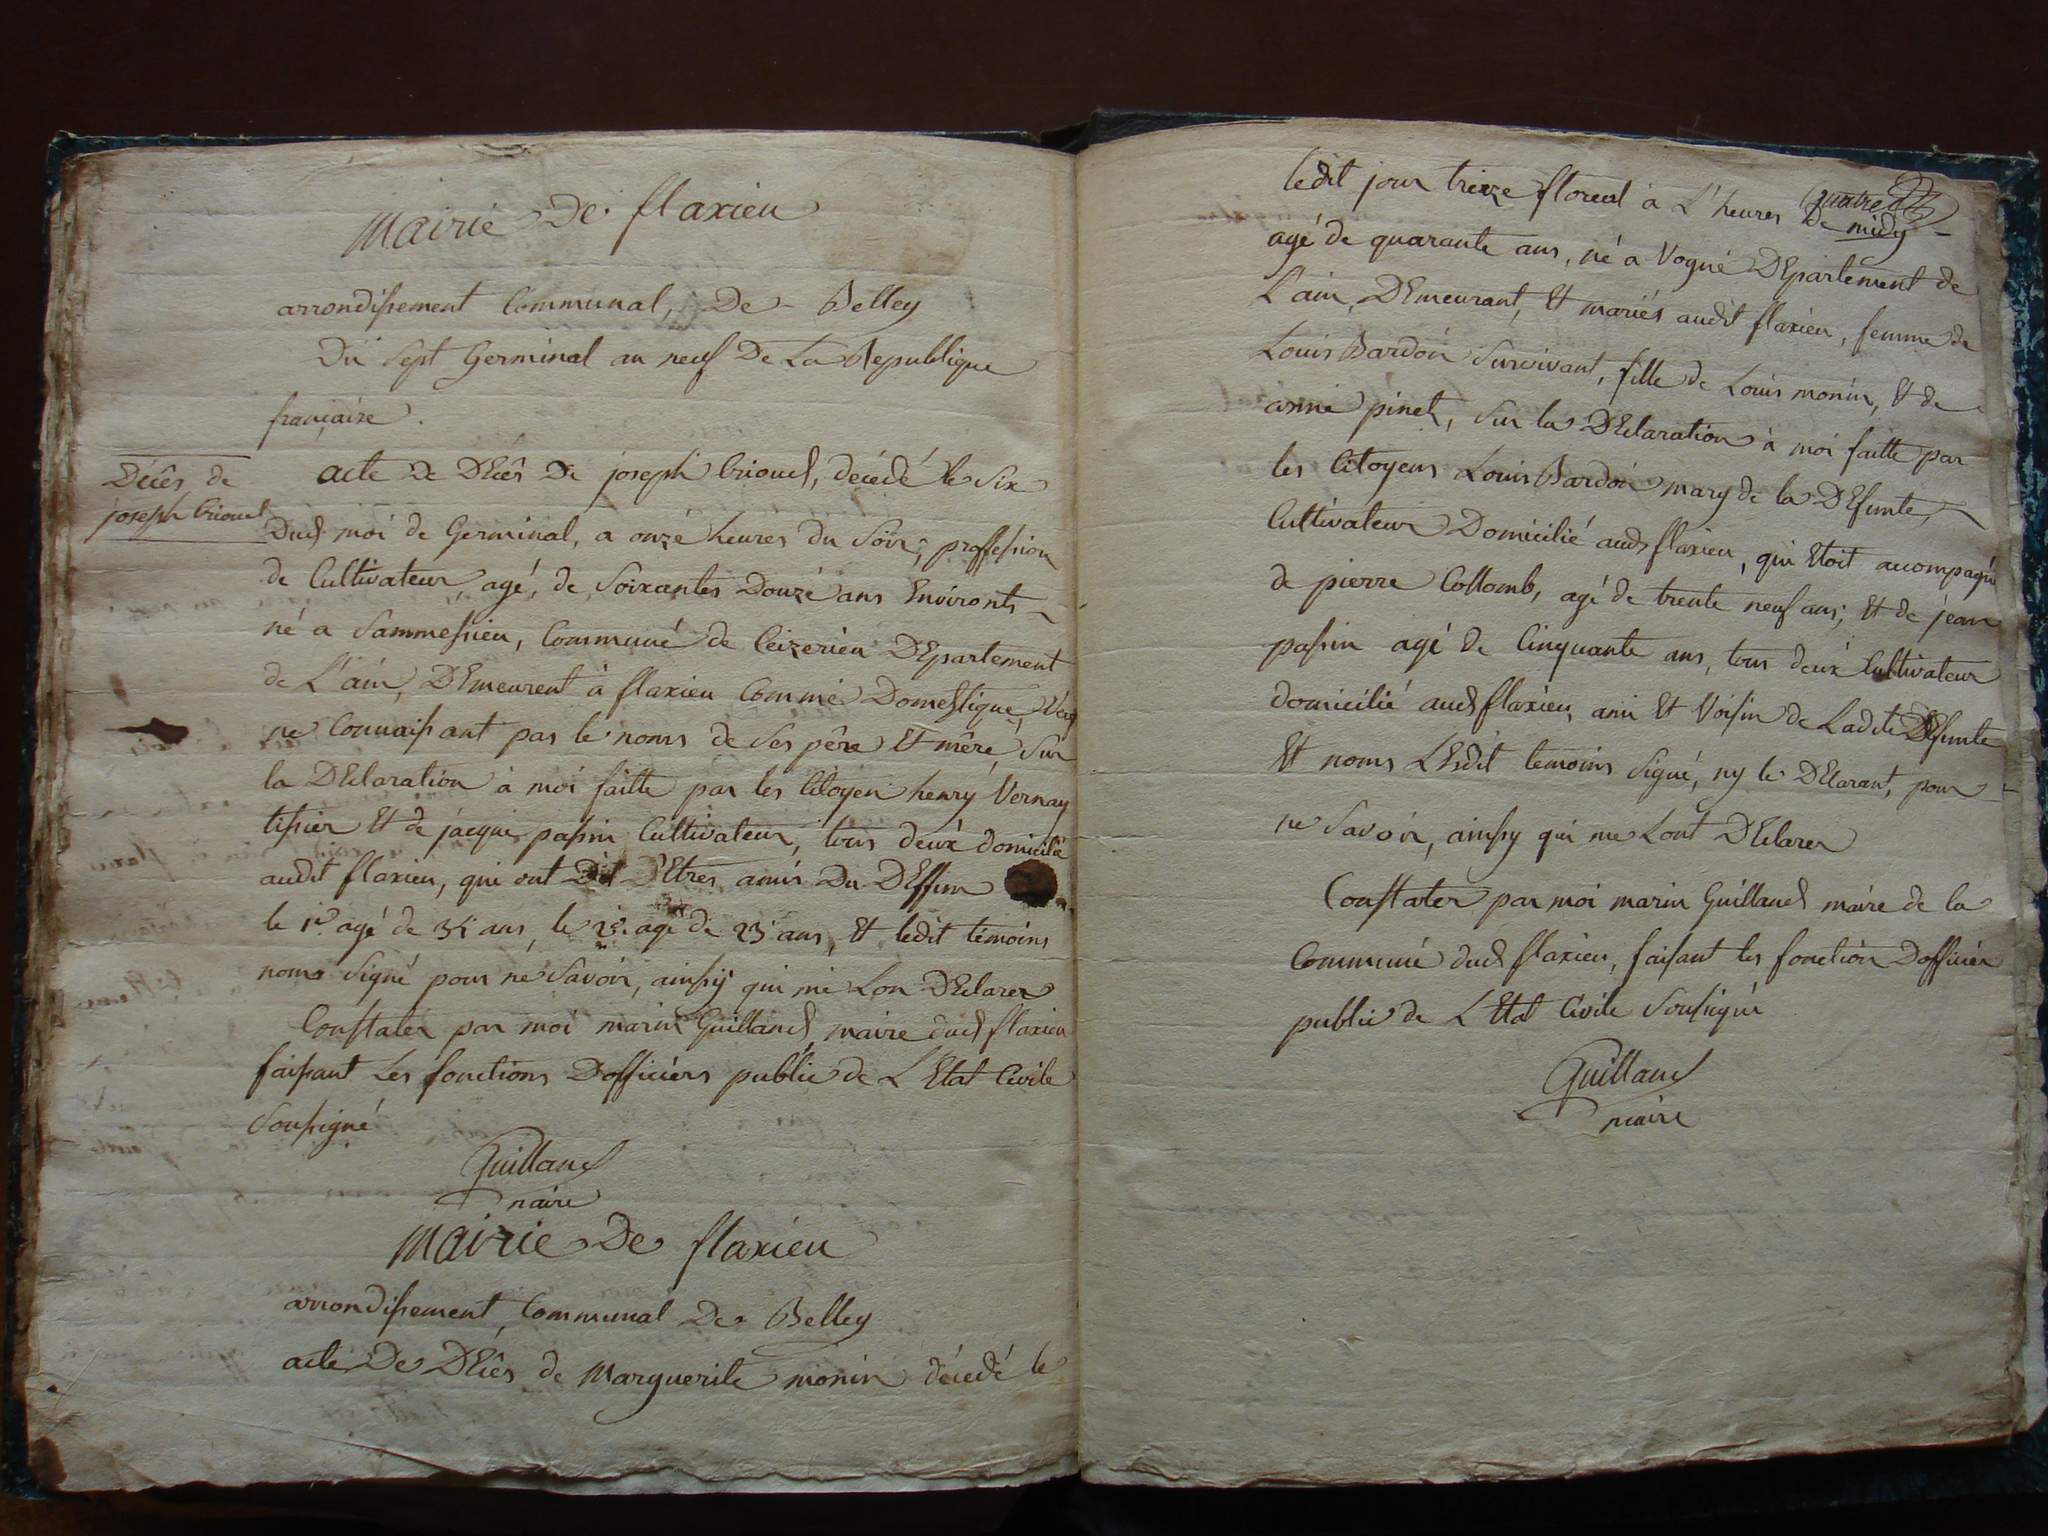 Mairie De flaxieu
arrondissement Communal, De Belley
Du Sept Germinal an neuf De La Republique
française.
Décês de
joseph
acte De DEcês De joseph décédé le Six
Dud moi de Germinal, a onze heures du Soir, proffession
de Cultivateur, agé, de Soixantes Douze ans Environts
né a Sammessieu, Commune de Ceizerieu DEpartement
de L'ain, DEmeurent à flaxieu Comme Domestique,
ne Connaissant pas le noms de Ses père Et mère, Sur
la DEclaration à moi faitte par les Citoyen henry Vernay
tissier Et de jacque passin Cultivateur, tous deux domicilié
audit flaxieu, qui ont Dit D'Etres amis Du DEffun
le 1er agé de ans, le 2e agé de 23 ans, Et ledit témoins
nome Signé pour ne Savoir, ainssy qui me Lon DEclarer
Constater par moi marin Guilland, maire dud flaxieu
faissant Les fonctions Dofficiers public de L'Etat Civile
Soussigné
Guilland
maire
Mairie De flaxieu
arrondissement Communal De Belley
acte De DEcês de Marguerite monin décédé le
ledit jour treize floreal à L'heures quatre
de midy
agé de quarante ans, né a Vogné DEpartement de
L'ain, DEmeurant, Et mariés audit flaxieu, femme de
Louis Bardon Survivant, fille de Louis monin, Et de
anne pinet, Sur la DEclaration à moi faitte par
les Citoyens Louis Bardon mary de la DEfunte,
Cultivateur Domicilié aud flaxieu, qui Etoit accompagné
de pierre Collomb, agé de trente neuf ans; Et de jean
passin agé de Cinquante ans, tous deux Cultivateur
domicilié aud flaxieu, ami Et Voisin de Ladite DEfunte
Et noms LEsdit temoins Signé, ny le DEclarant, pour
ne Savoir, ainssy qui me Lont DEclarer
Constater par moi marin Guilland maire de la
Commune dud flaxieu, faisant les fonction Dofficier
public de L'Etat Civile Soussigné
Guilland
maire